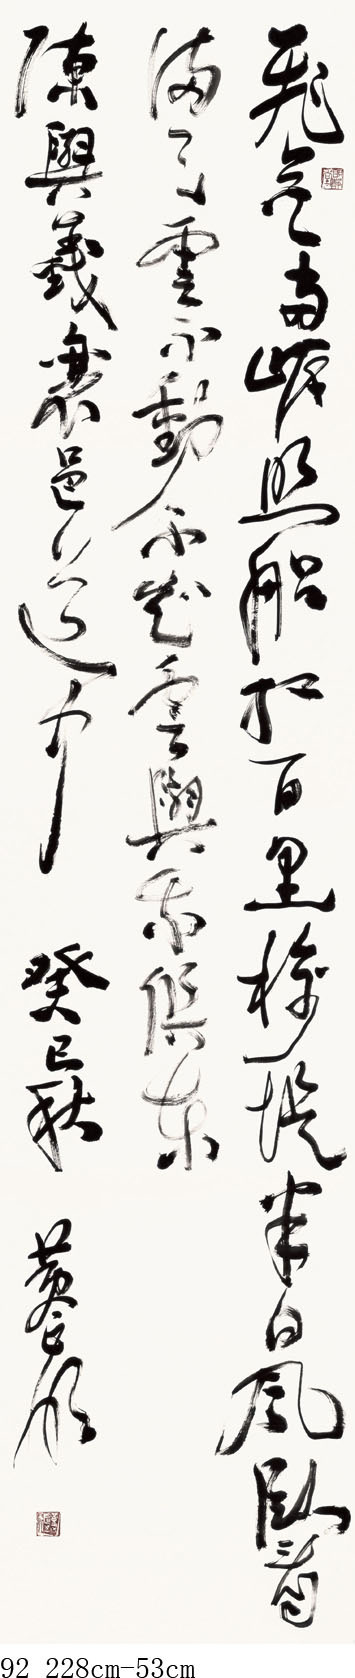 飛花兩岸照船紅百里榆堤半日風臥看
滿天雲不動不知雲與我俱東
陳與義襄邑道中 癸巳秋
92 228cm-53cm